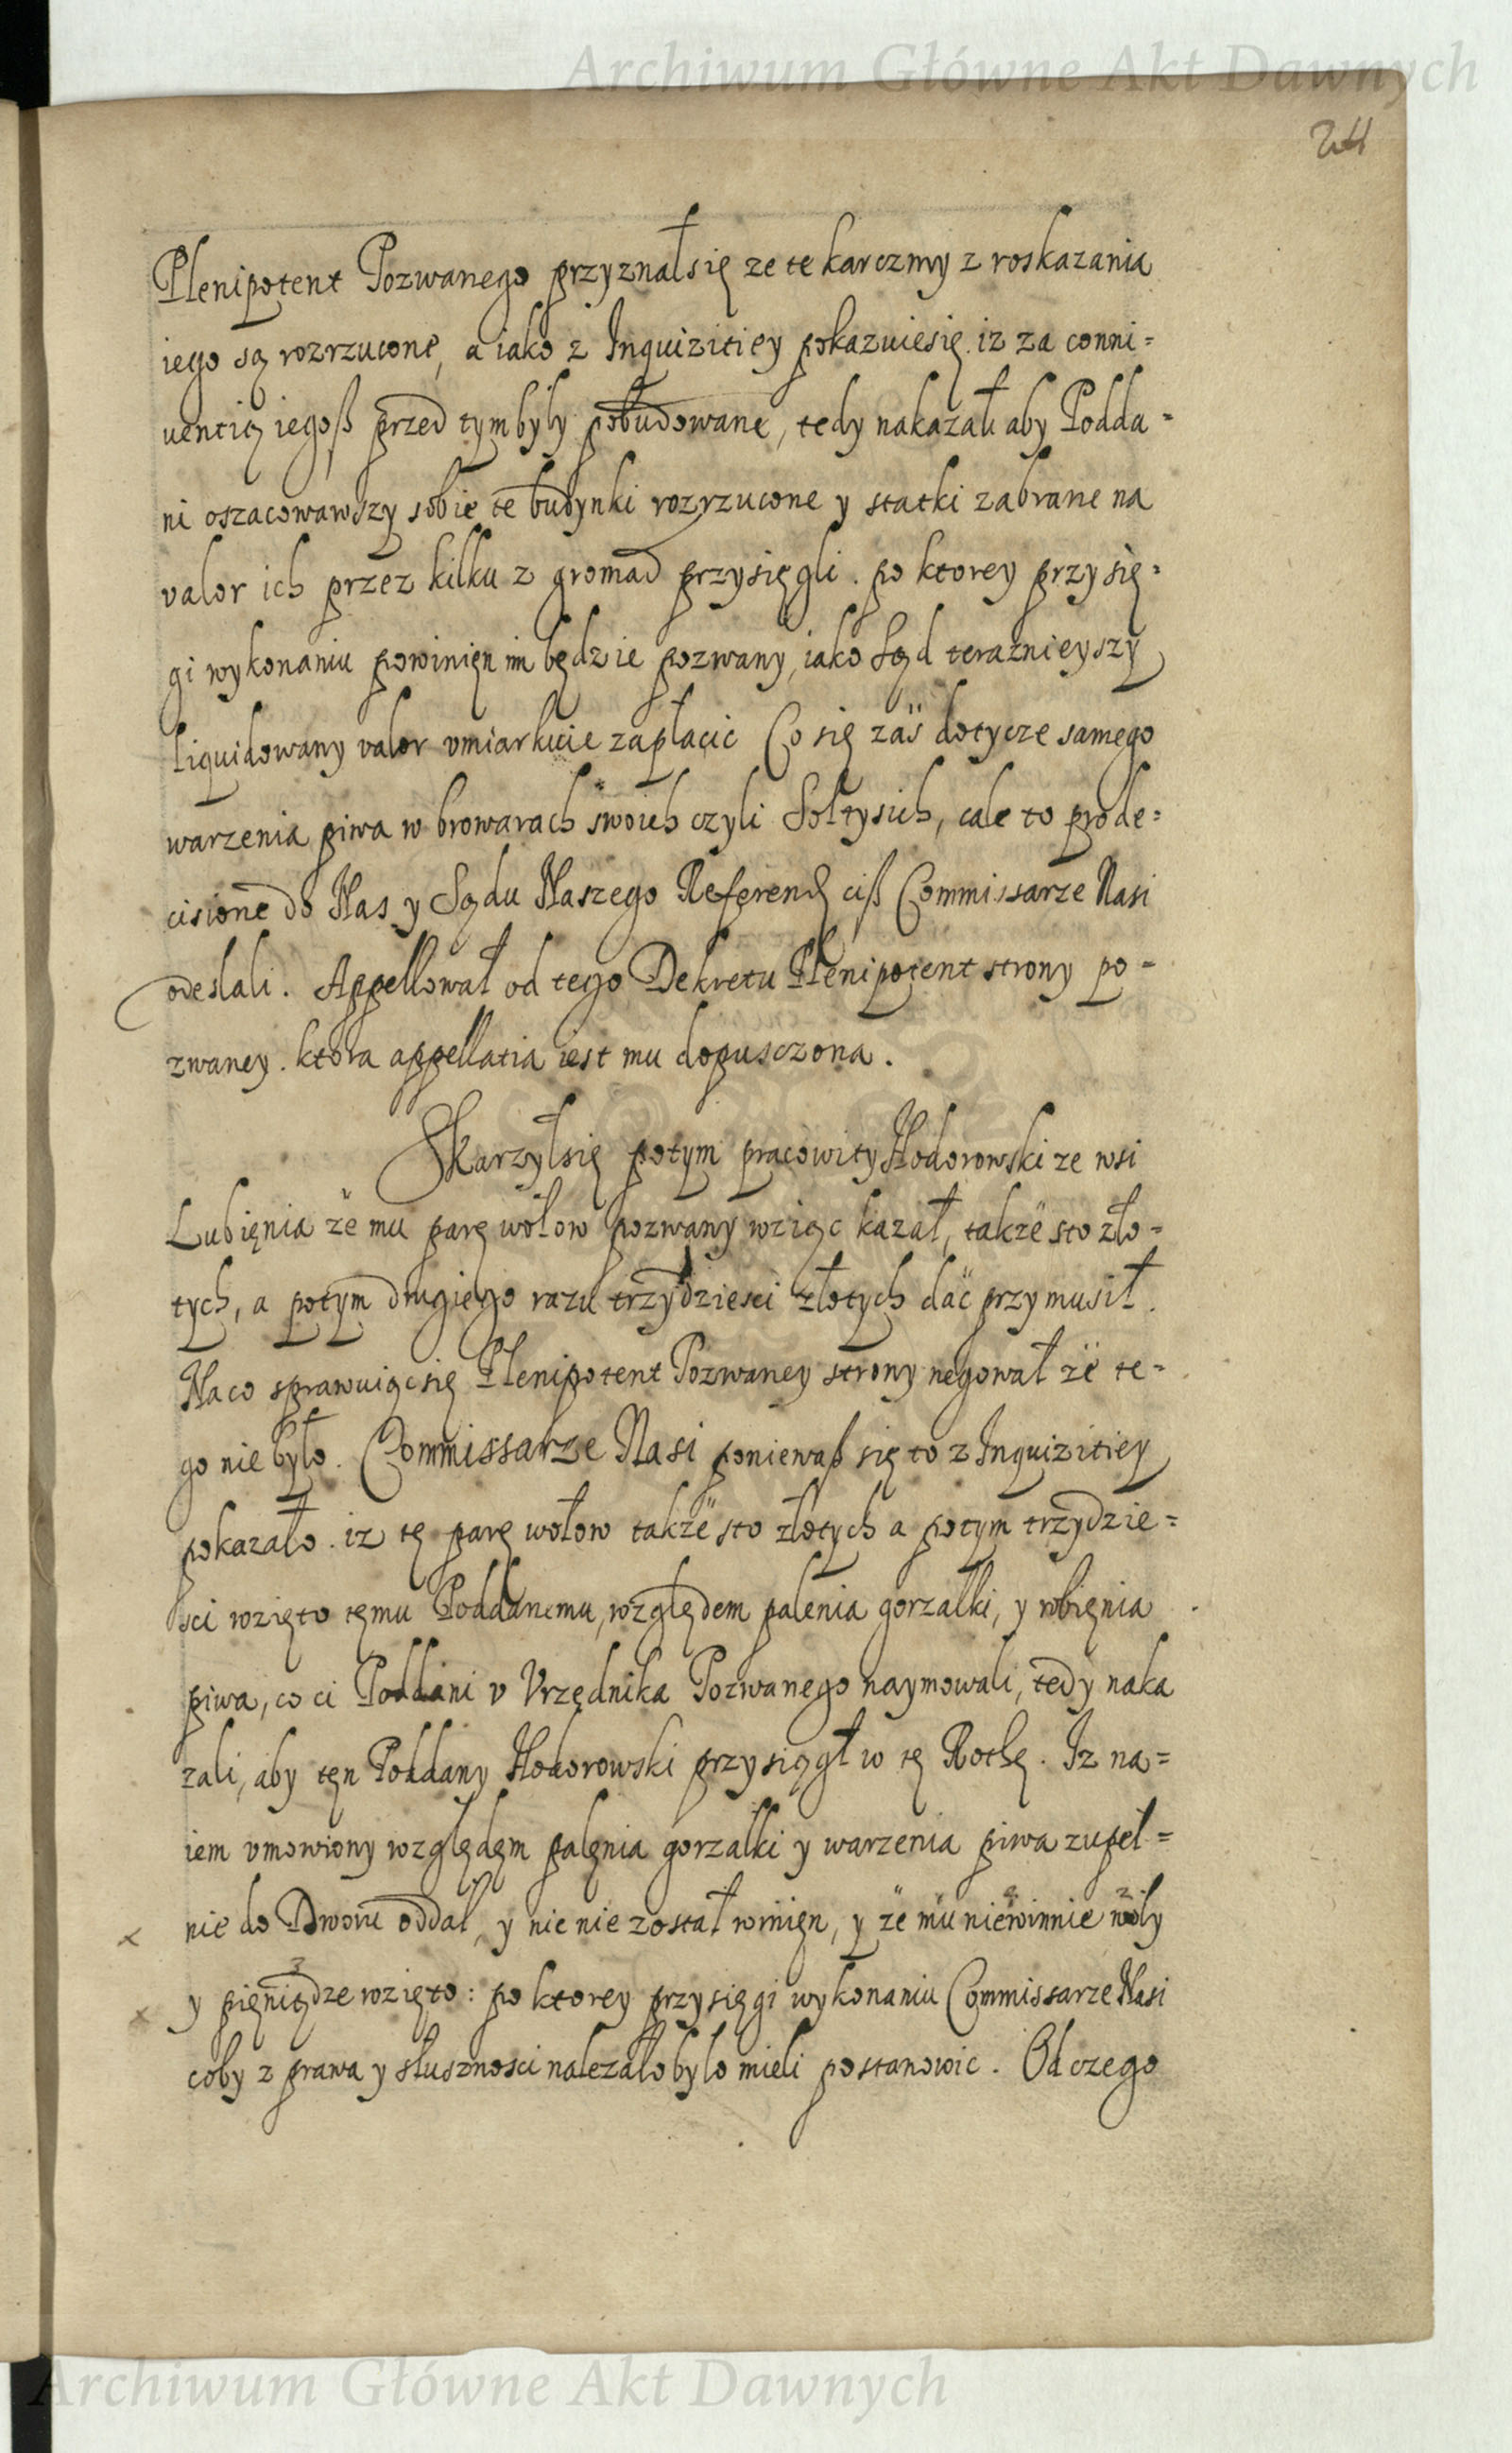 Archiwum Główne Akt Dawnych
Plenipotent Pozwanego przyznał się ze te karczmy z roskazania
iego są rozrzucone, a iako z Inquizitiey pokazuiesię. iz za conni=
uentią iegoß przed tym były pobudowane, tedy nakazali aby Podda=
ni oszacowawszy sobie te budynki rozrzucone y statki zabrane na
valor ich przez kilku z gromad przysięgli. po ktorey przysię=
gi wykonaniu powinięn im będzie pozwany, iako Sąd teraznieyszy
liquidowany valor vmiarkuie zapłacic Co się zaś dotycze samego
warzenia piwa w browarach swoich czyli Soltysich, cale to pro de=
cisione do Nas y Sądu Naszego Referend ciß Commissarze Nasi
odeslali. Appellował od tego Dekretu Plenipotent strony po=
zwaney. ktora appellatia iest mu dopusczona.
Skarzył się potym pracowity Hodorowski ze wsi
Lubięnia że mu parę wołow pozwany wziąc kazał, także sto zło=
tych, a potym drugiego razu trzydziesci złotych dać przymusił.
Na co sprawuiąc się Plenipotent Pozwaney strony negował że te=
go nie było. Commissarze Nasi poniewaß się to z Inquizitiey
pokazało. iz tę parę wołow także sto złotych a potym trzydzie=
sci wzięto tęmu Poddanemu, względem palenia gorzalki, y robięnia
piwa, co ci Poddani v Vrzędnika Pozwanego naymowali, tedy naka
zali, aby tęn Poddany Hodorowski przysiągł w tę Rothę. Iz na=
iem vmowiony względęm palęnia gorzalki y warzenia piwa zupeł=
nie do Dworu oddał, y nic nie został winięn, y że mu niewinnie woły
y pięniądze wzięto: po ktorey przysięgi wykonaniu Commissarze Nasi
coby z prawa y słusznosci nalezało było mieli postanowic. Od czego
Archiwum Główne Akt Dawnych